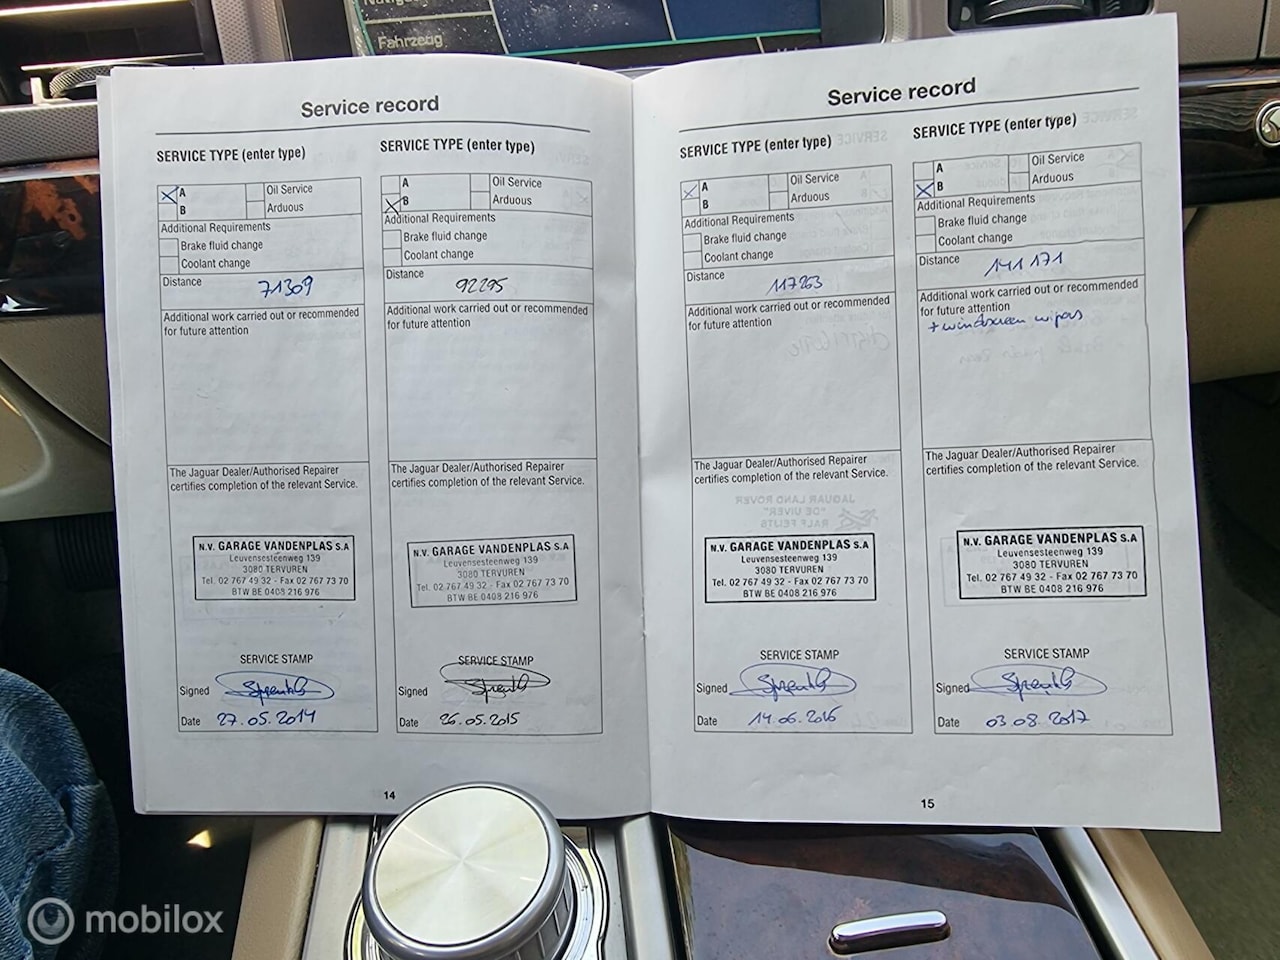 Fahrzeug
Service record
SERVICE TYPE (enter type)
A
B
Oil Service
Arduous
Additional Requirements
Brake fluid change
Coolant change
Distance 71309
Additional work carried out or recommended
for future attention
The Jaguar Dealer/Authorised Repairer
certifies completion of the relevant Service.
N.V. GARAGE VANDENPLAS S.A
Leuvensesteenweg 139
3080 TERVUREN
Tel. 02 767 49 32 - Fax 02 767 73 70
BTW BE 0408 216 976
SERVICE STAMP
Signed
Date 27.05.2014
SERVICE TYPE (enter type)
A
B
Oil Service
Arduous
Additional Requirements
Brake fluid change
Coolant change
Distance 92295
Additional work carried out or recommended
for future attention
The Jaguar Dealer/Authorised Repairer
certifies completion of the relevant Service.
N.V. GARAGE VANDENPLAS S.A
Leuvensesteenweg 139
3080 TERVUREN
Tel. 02 767 49 32 - Fax 02 767 73 70
BTW BE 0408 216 976
SERVICE STAMP
Signed
Date 26.05.2015
14
Service record
SERVICE TYPE (enter type)
A
B
Oil Service
Arduous
Additional Requirements
Brake fluid change
Coolant change
Distance 117263
Additional work carried out or recommended
for future attention
The Jaguar Dealer/Authorised Repairer
certifies completion of the relevant Service.
N.V. GARAGE VANDENPLAS S.A
Leuvensesteenweg 139
3080 TERVUREN
Tel. 02 767 49 32 - Fax 02 767 73 70
BTW BE 0408 216 976
SERVICE STAMP
Signed
Date 14.06.2016
SERVICE TYPE (enter type)
A
B
Oil Service
Arduous
Additional Requirements
Brake fluid change
Coolant change
Distance 141171
Additional work carried out or recommended
for future attention
+ windscreen wipers
The Jaguar Dealer/Authorised Repairer
certifies completion of the relevant Service.
N.V. GARAGE VANDENPLAS S.A
Leuvensesteenweg 139
3080 TERVUREN
Tel. 02 767 49 32 - Fax 02 767 73 70
BTW BE 0408 216 976
SERVICE STAMP
Signed
Date 03.08.2017
15
mobilox